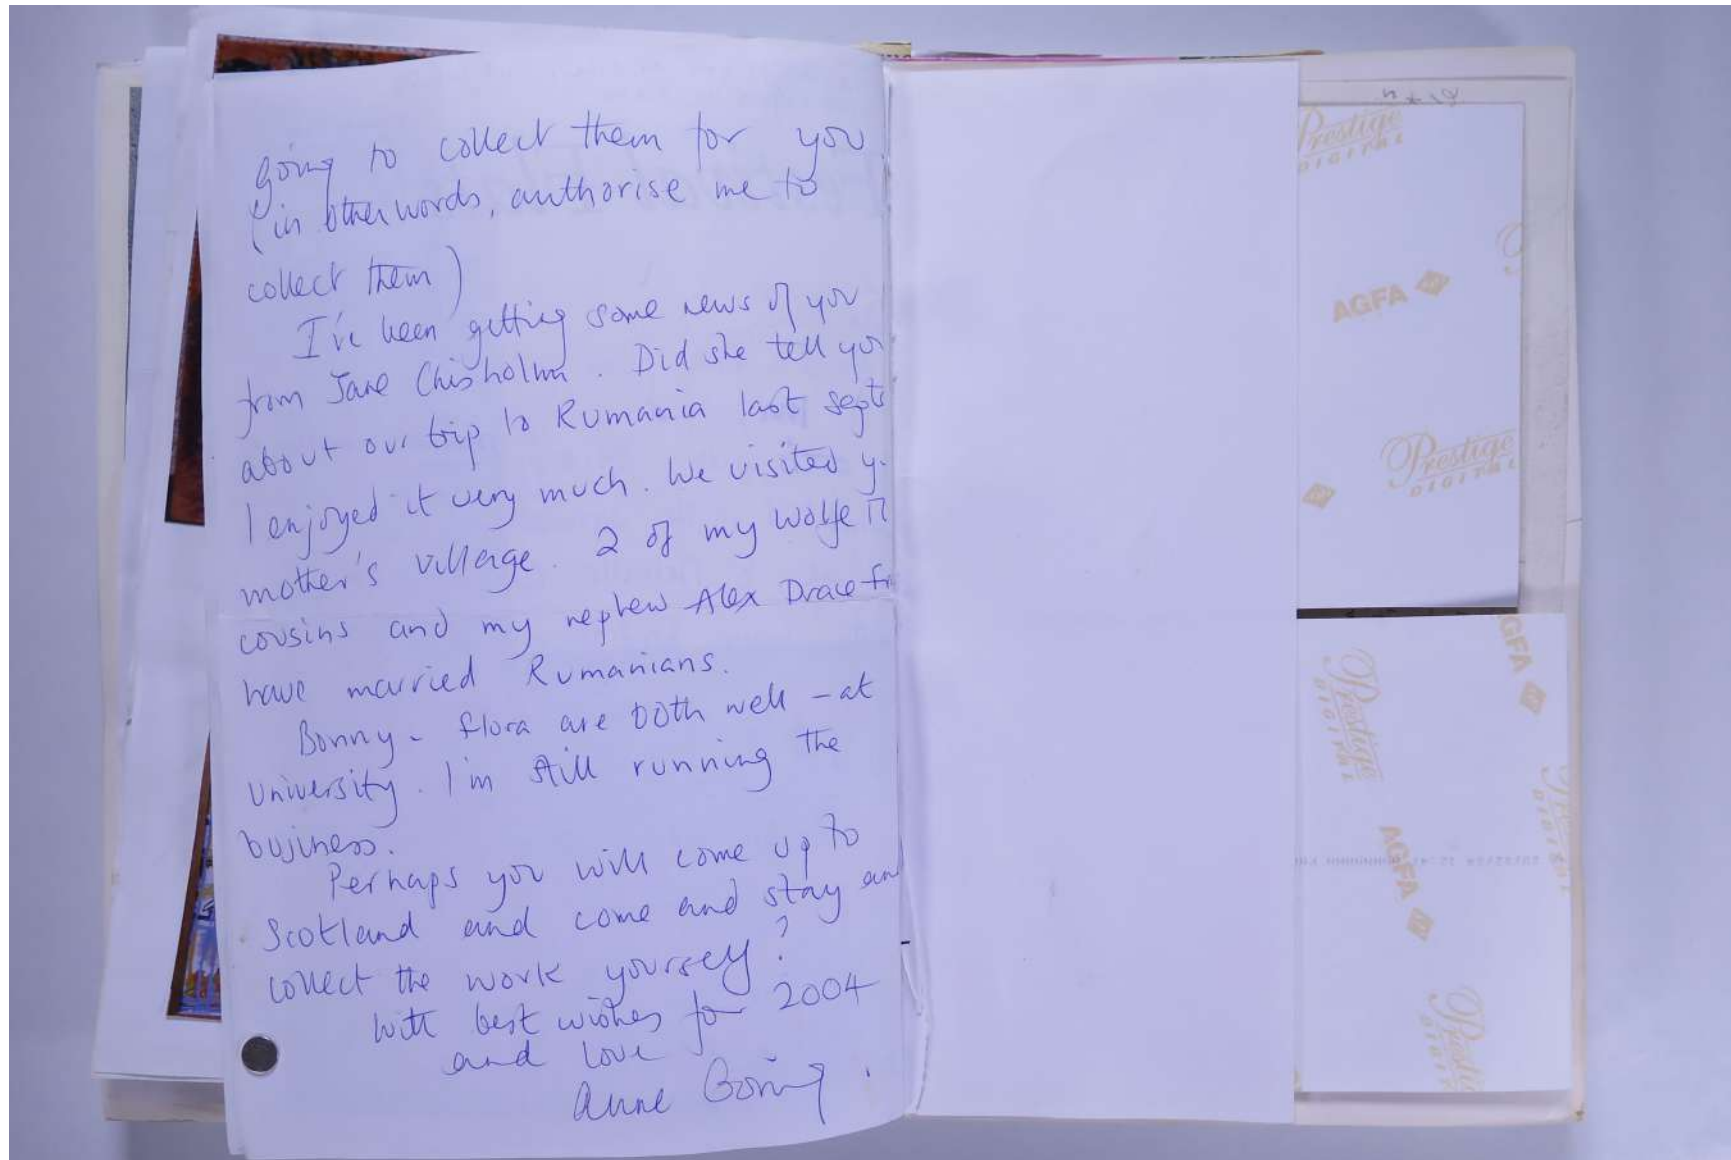 going to collect them for you
(in other words, authorise me to
collect them)
I've been getting some news of you
from Jane Chisholm. Did she tell you
about our trip to Rumania last sept
I enjoyed it very much. We visited y
mother's village. 2 of my Wolfe
cousins and my nephew Alex Drace fr
have married Rumanians.
Bonny - Flora are both well - at
University. I'm still running the
business.
Perhaps you will come up to
Scotland and come and stay an
collect the work yourself?
With best wishes for 2004
and love
Anne Goring.
Prestige
DIGITAL
AGFA
Prestige
DIGITAL
AGFA
Prestige
DIGITAL
AGFA
Prestige
DIGITAL